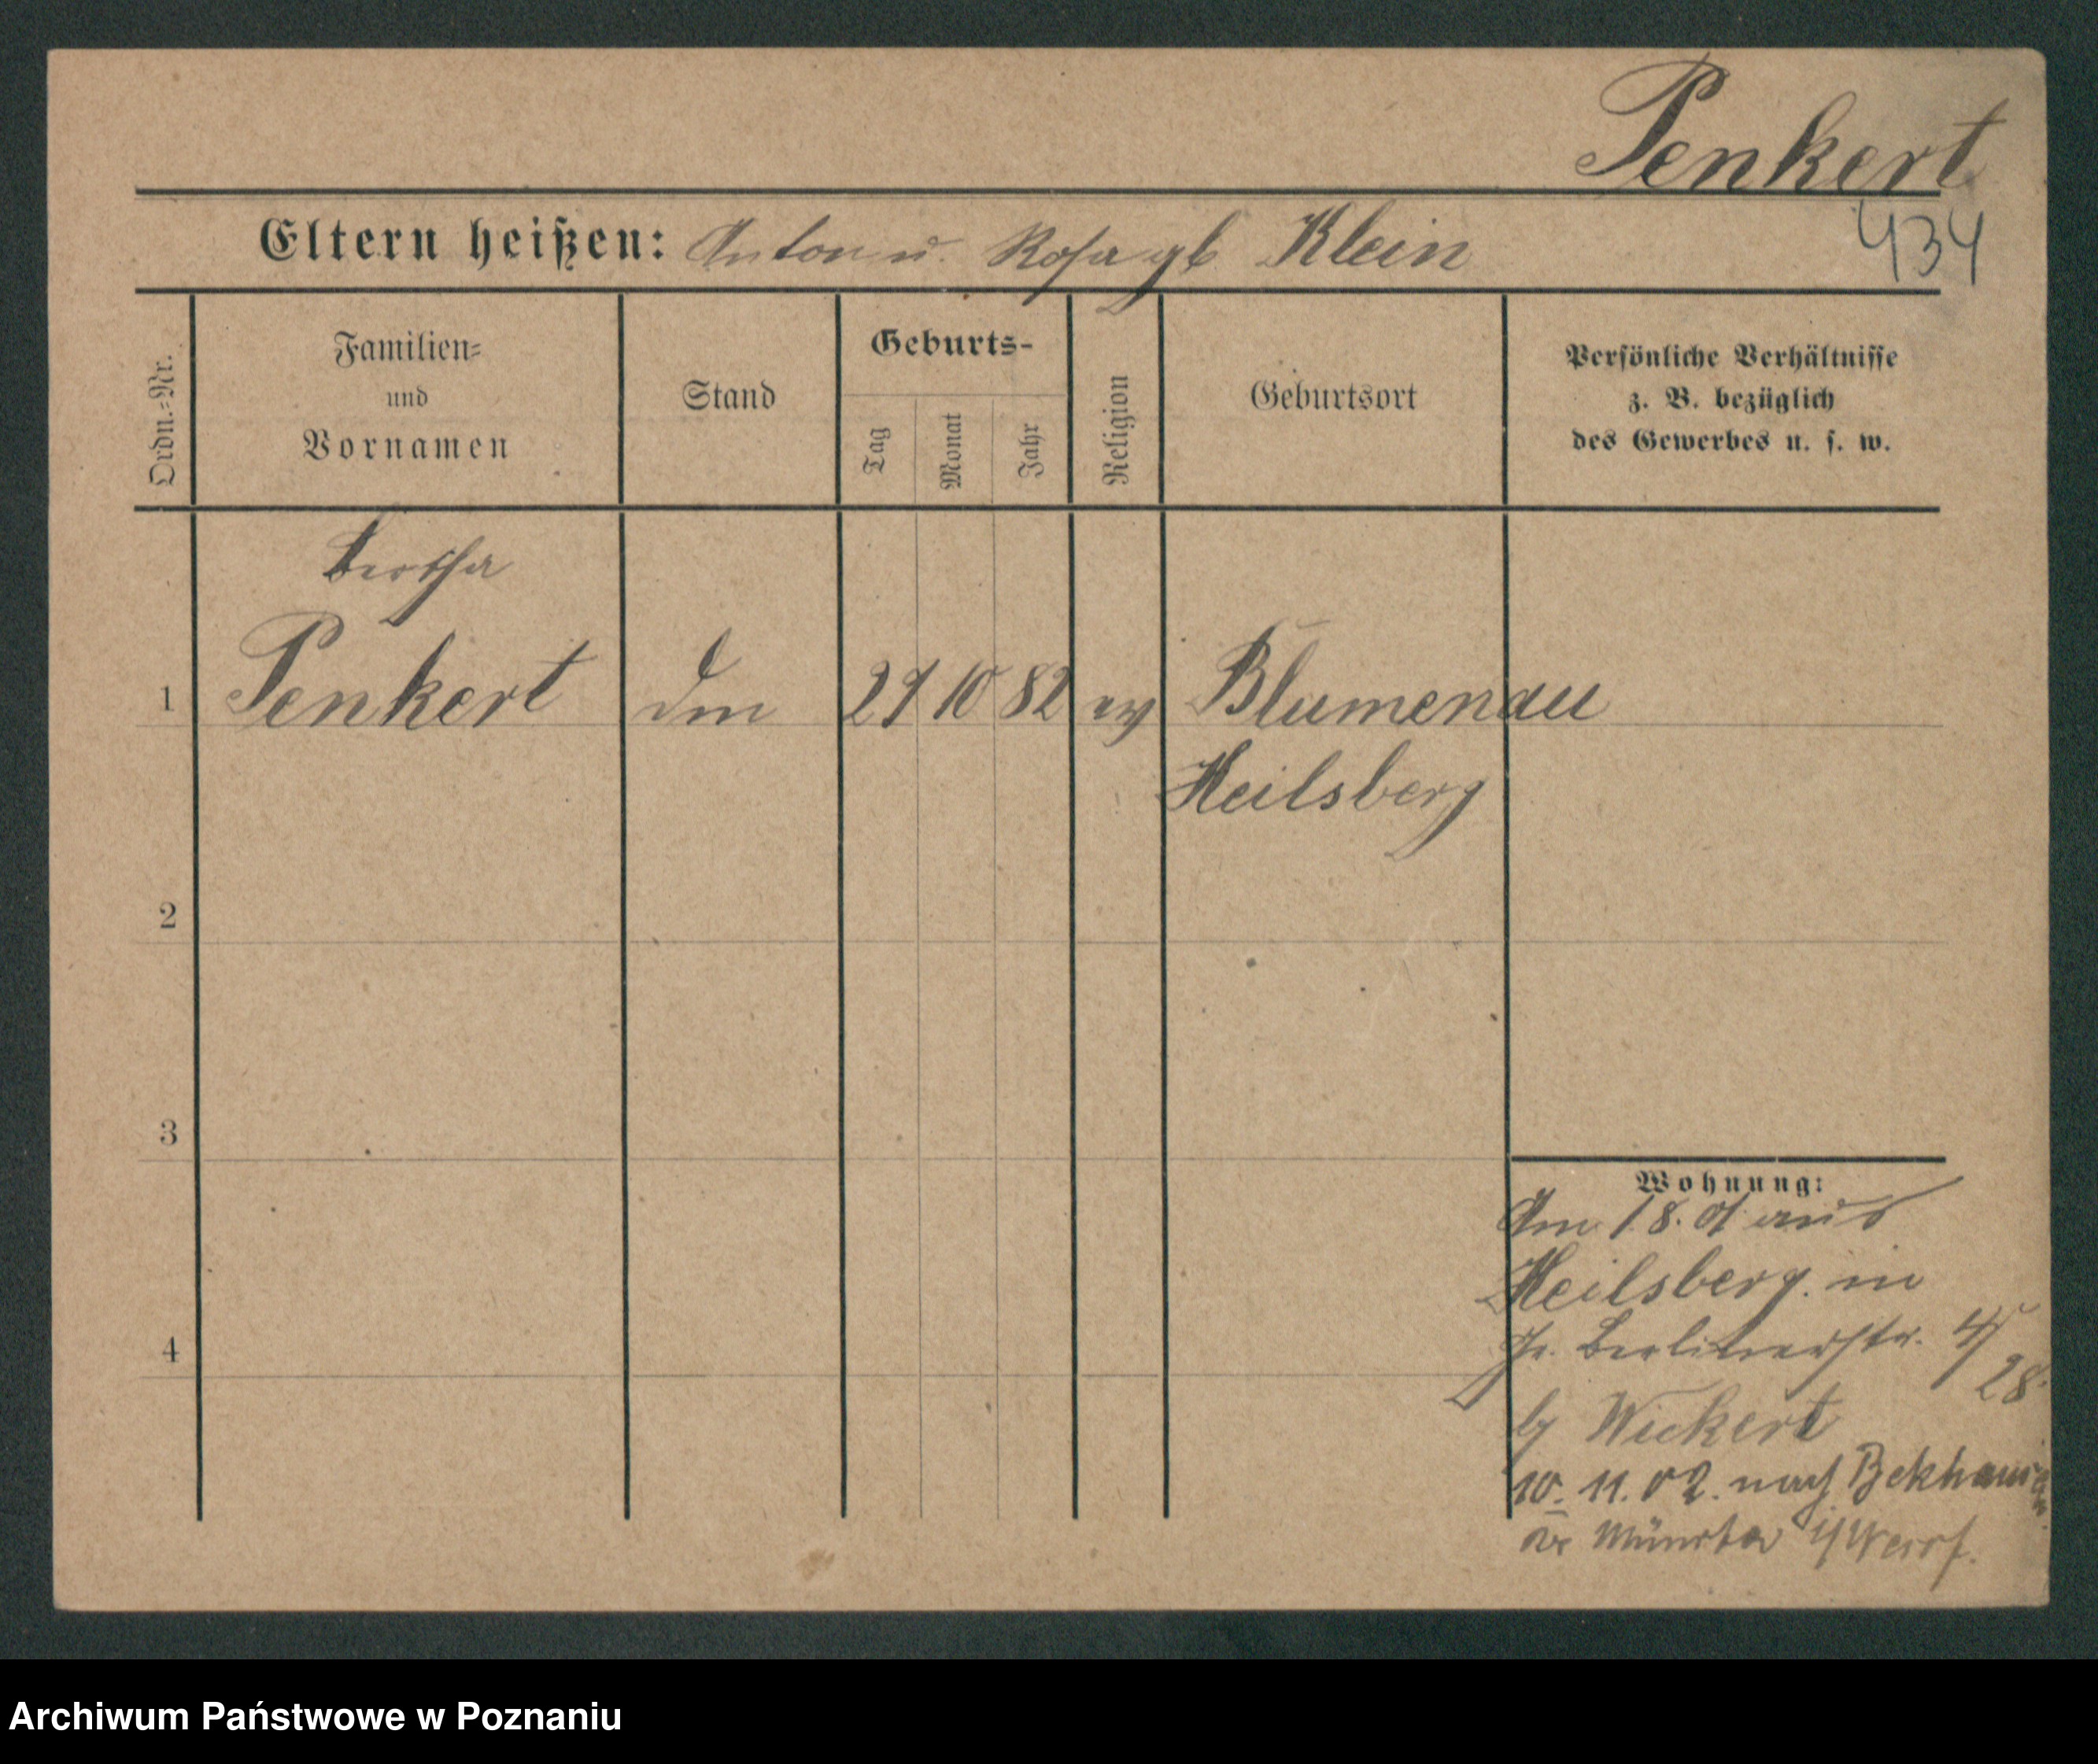 Penkert
434
Eltern heißen: Anton u. Rosa gb Klein
Ordn.-Nr.
Familien-
und
Vornamen
Stand
Geburts-
Tag
Monat
Jahr
Religion
Geburtsort
Persönliche Verhältnisse
z. B. bezüglich
des Gewerbes u. s. w.
Bertha
1 Penkert 10 82 Blumenau
Heilsberg
2
3
4
Wohnung:
Am 1.8.01 aus
Heilsberg in
Gr. Berlinerstr. 4/
28.
b/ Wickert
10. 11. 02. nach
Münster i/Westf.
Archiwum Państwowe w Poznaniu